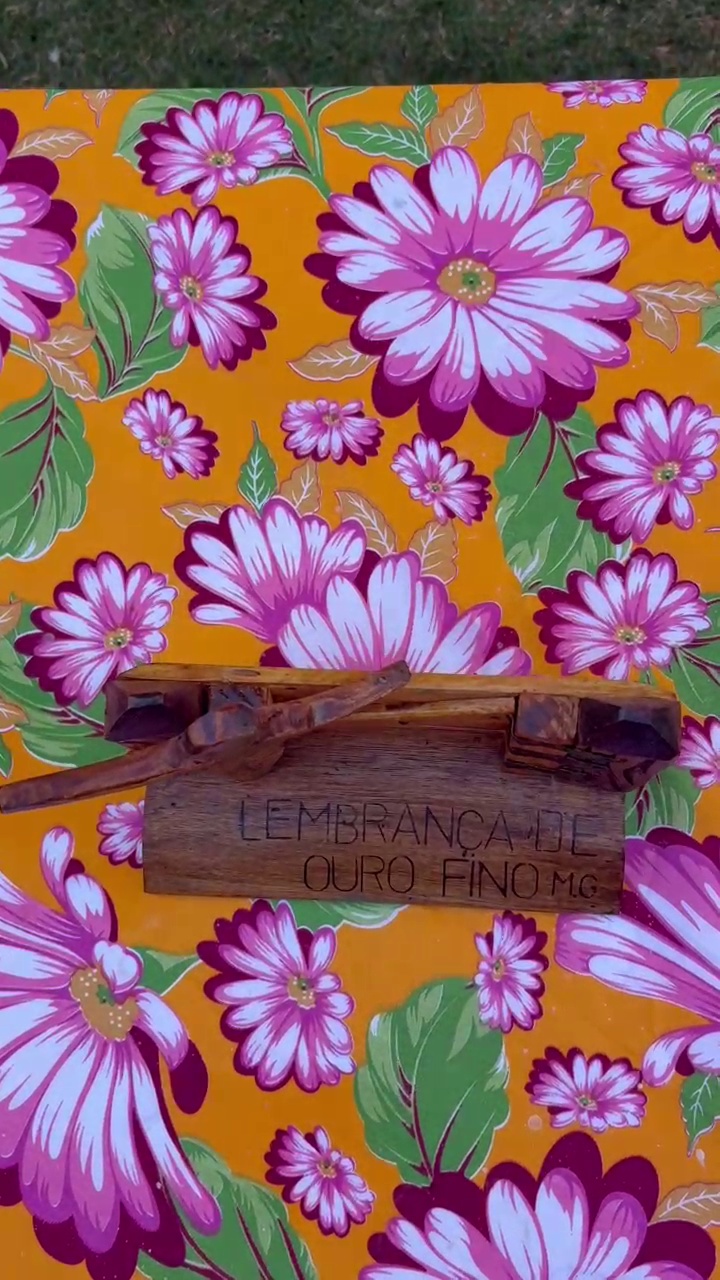 LEMBRANÇA DE
OURO FINO M.G